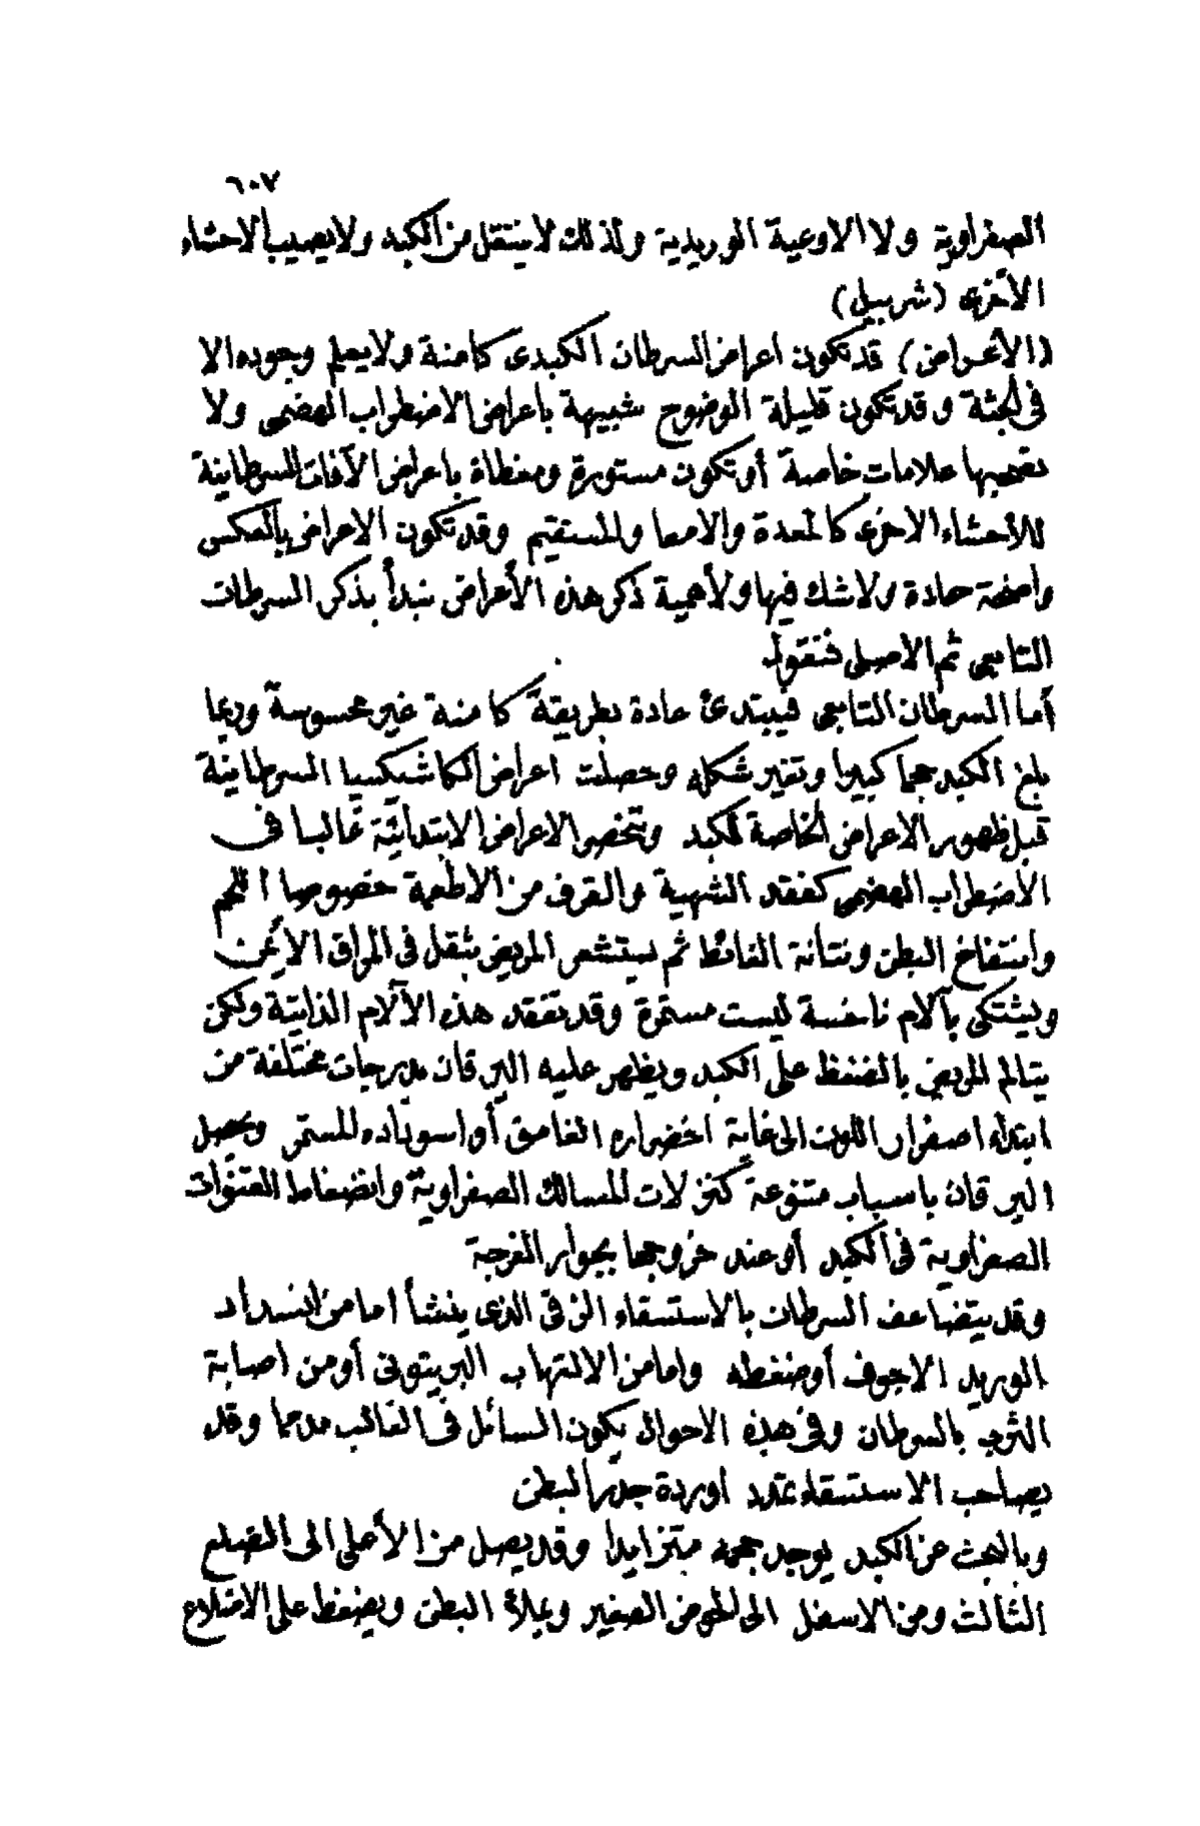 ٦٠٧
الصفراوية ولا الاوعية الوريدية ولذلك لا ينتقل من الكبد ولا يصيب الاحشاء
الأخرى (شربيل)
(الأعراض) قد تكون اعراض السرطان الكبدى كامنة ولا يعلم وجوده الا
فى الجثة وقد تكون قليلة الوضوح شبيهة باعراض الاضطراب الهضمى ولا
تصحبها علامات خاصة أو تكون مستورة ومغطاة باعراض الآفات السرطانية
للأحشاء الاخرى كالمعدة والامعا والمستقيم وقد تكون الاعراض بالعكس
واضحة حادة ولا شك فيها ولأهمية ذكر هذه الأعراض نبدأ بذكر السرطان
التابعى ثم الاصلى فنقول
أما السرطان التابعى فيبتدئ عادة بطريقة كامنة غير محسوسة وربما
بلغ الكبد حجما كبيرا وتغير شكله وحصلت اعراض الكاشيكسيا السرطانية
قبل ظهور الاعراض الخاصة للكبد وتنحصر الاعراض الابتدائية غالبا فى
الاضطراب الهضمى كفقد الشهية والقرف من الاطعمة خصوصا اللحم
وانتفاخ البطن ونتانة الغائط ثم يستشعر المريض بثقل فى المراق الأيمن
ويشتكى بآلام ناخسة ليست مستمرة وقد تفقد هذه الآلام الذاتية ولكن
يتالم المريض بالضغط على الكبد ويظهر عليه اليرقان بدرجات مختلفة من
ابتداء اصفرار اللون الى غاية اخضراره الغامق أو اسوداده المستمر ويحصل
اليرقان باسباب متنوعة كنزلات المسالك الصفراوية وانضغاط القنوات
الصفراوية فى الكبد أو عند خروجها بجوار الفرجة
وقد يتضاعف السرطان بالاستسقاء الزقى الذى ينشأ اما من انسداد
الوريد الاجوف أو ضغطه واما من الالتهاب البريتونى أو من اصابة
الثرب بالسرطان وفى هذه الاحوال يكون السائل فى الغالب مدمما وقد
يصاحب الاستسقاء تمدد اوردة جدر البطن
وبالبحث عن الكبد يوجد حجمه متزايدا وقد يصل من الأعلى الى الضلع
الثالث ومن الاسفل الى الحوض الصغير ويملأ البطن ويضغط على الاضلاع